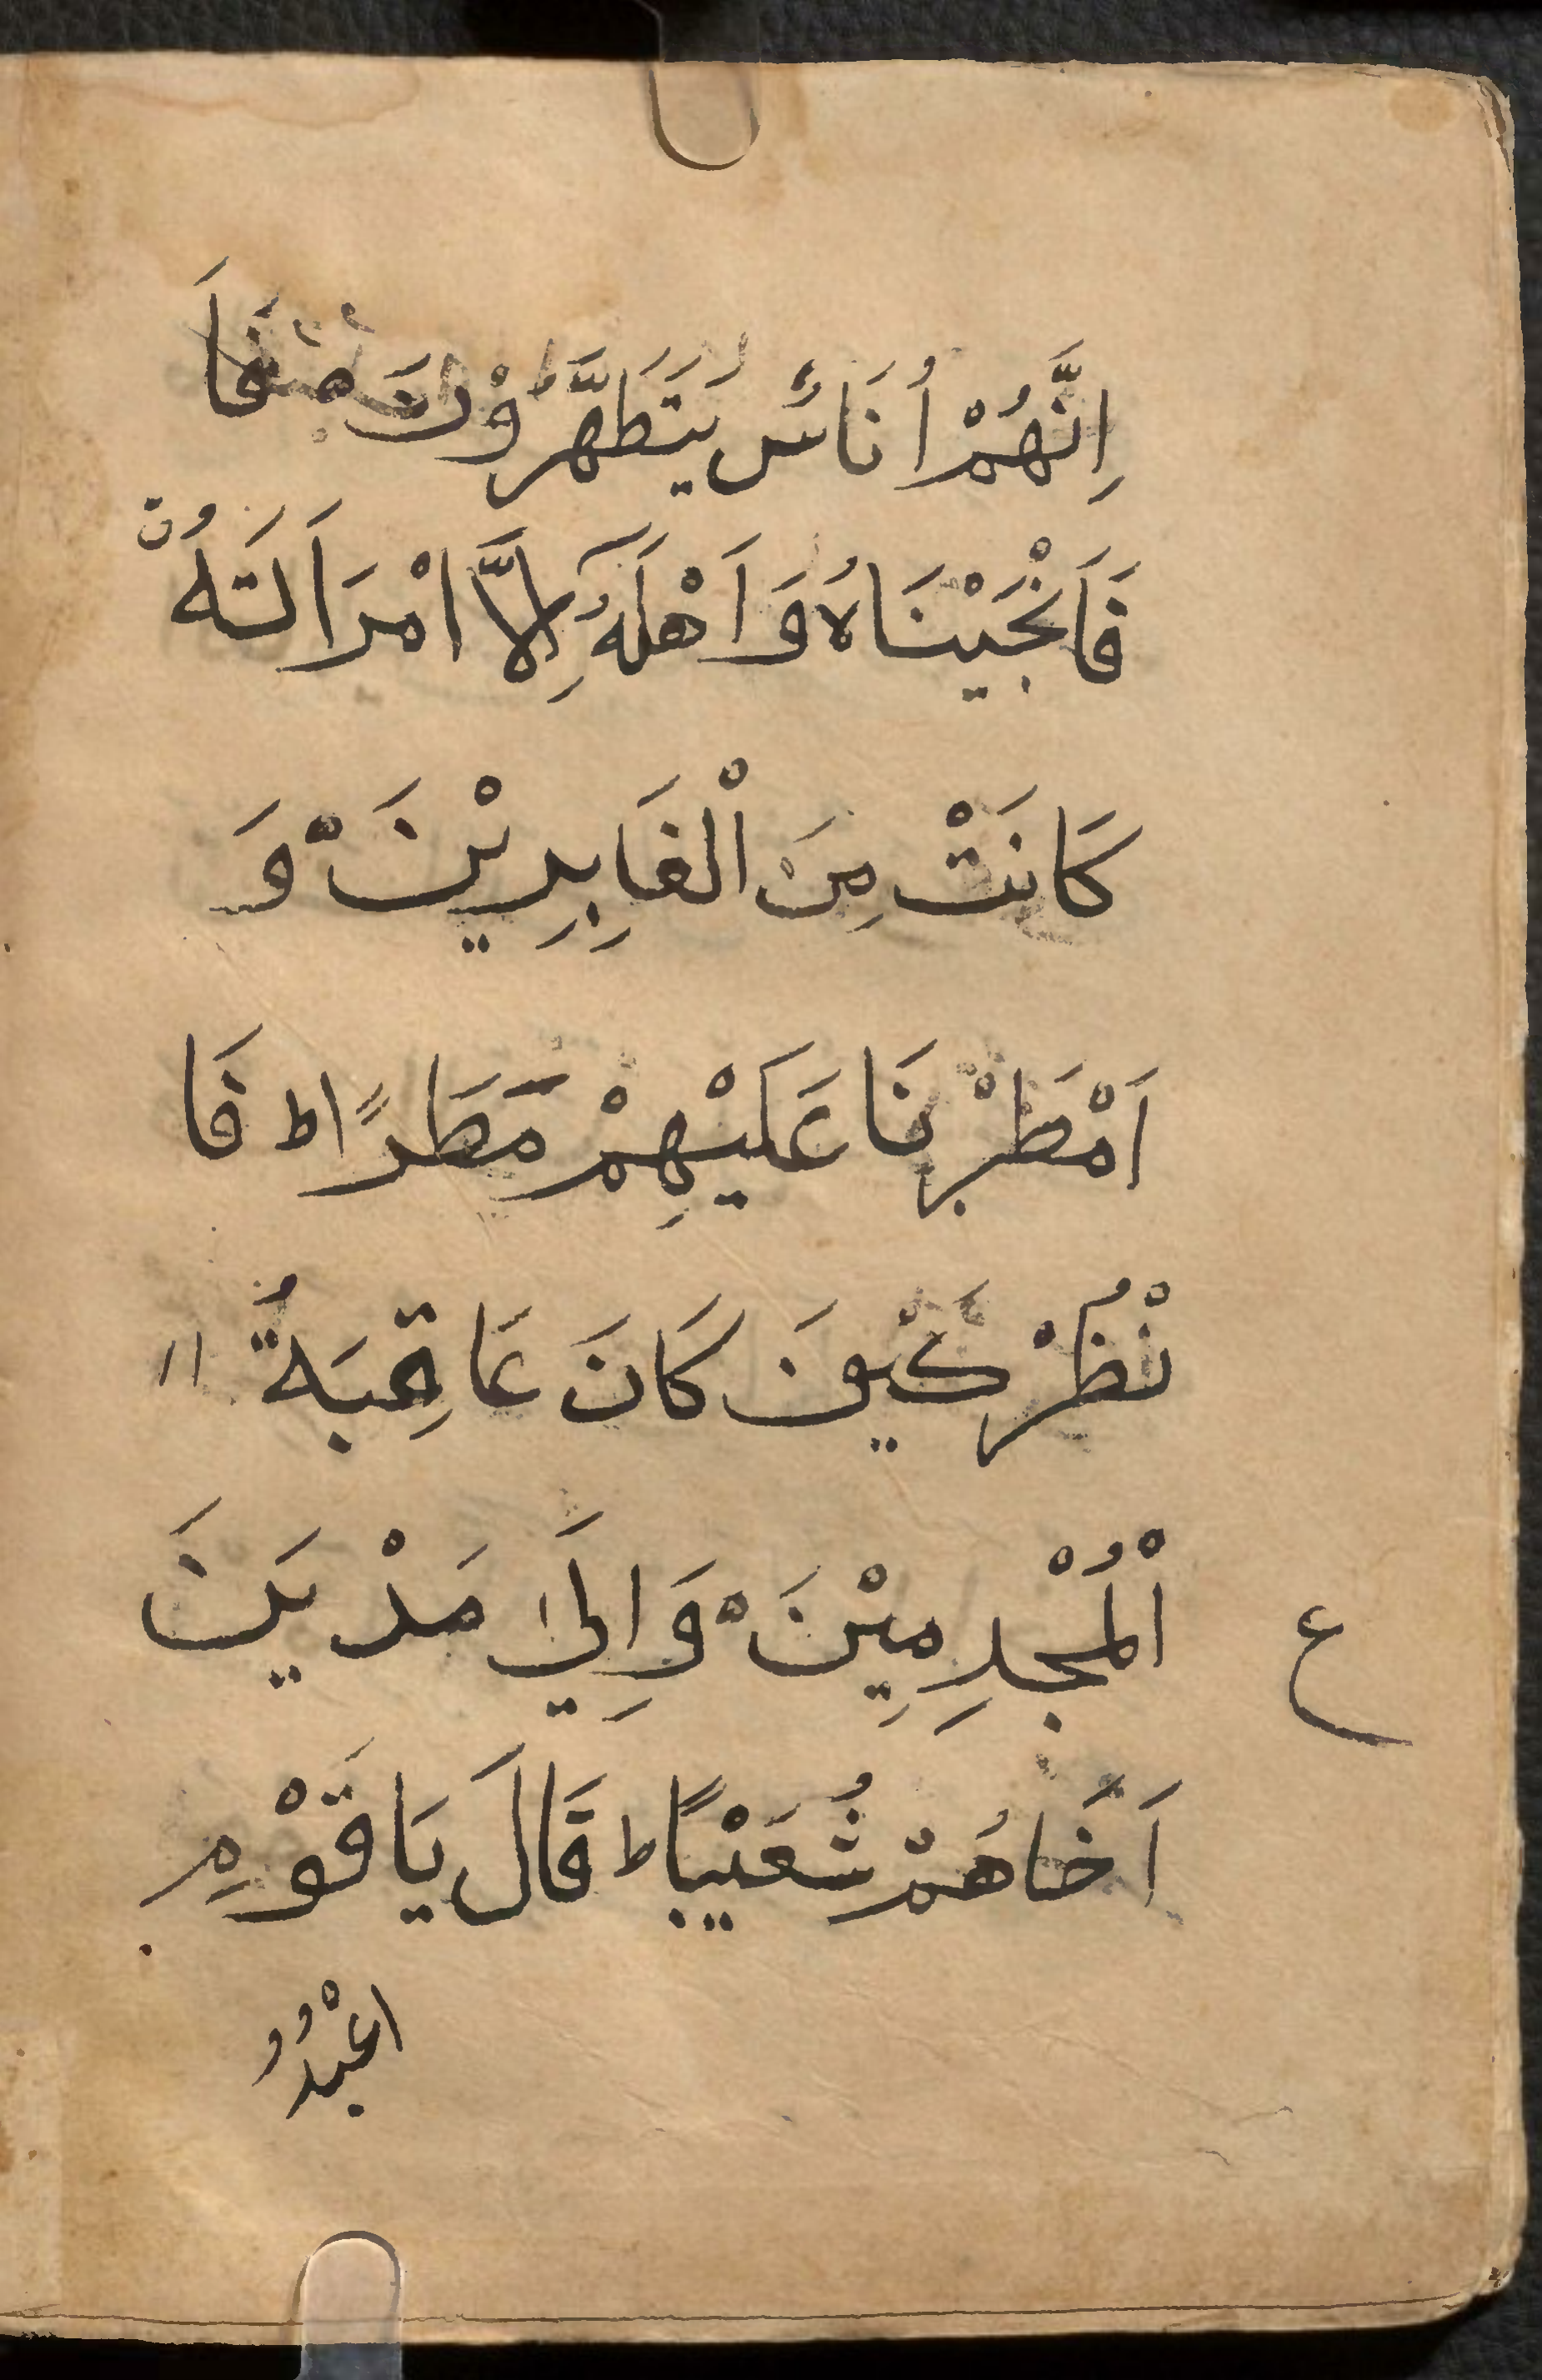 اِنَّهُمْ اُنَاسٌ يَتَطَهَّرُوْنَ
فَاَنْجَيْنَاهُ وَاَهْلَهُ اِلَّا امْرَاَتَهُ
كَانَتْ مِنَ الْغَابِرِيْنَ وَ
اَمْطَرْنَا عَلَيْهِمْ مَطَرًا ط فَا
نْظُرْ كَيْفَ كَانَ عَاقِبَةُ
ع
اْلْمُجْرِمِيْنَ وَاِلَيٰ مَدْيَنَ
اَخَاهُمْ شُعَيْبًا ط قَالَ يَا قَوْمِ
اعْبُدُو